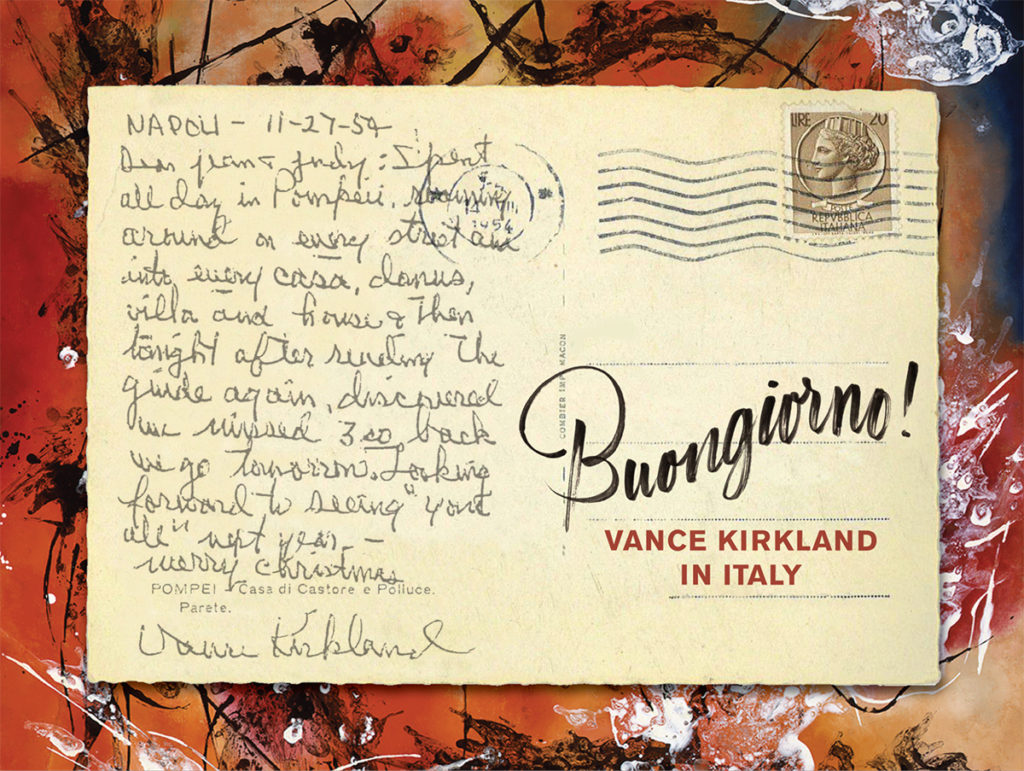 NAPOLI - 11-27-54
Dear Jean & Judy: I spent
all day in Pompeii, roaming
around on every street and
into every casa, domus,
villa and house & then
tonight after reading the
guide again, discovered
we missed 3 so back
we go tomorrow. Looking
forward to seeing "you
all" next year. -
Merry Christmas
POMPEI - Casa di Castore e Polluce.
Parete.
Vance Kirkland
1954
COMBIER IMP. MACON
LIRE 20
POSTE
REPVBBLICA
ITALIANA
Buongiorno!
VANCE KIRKLAND
IN ITALY